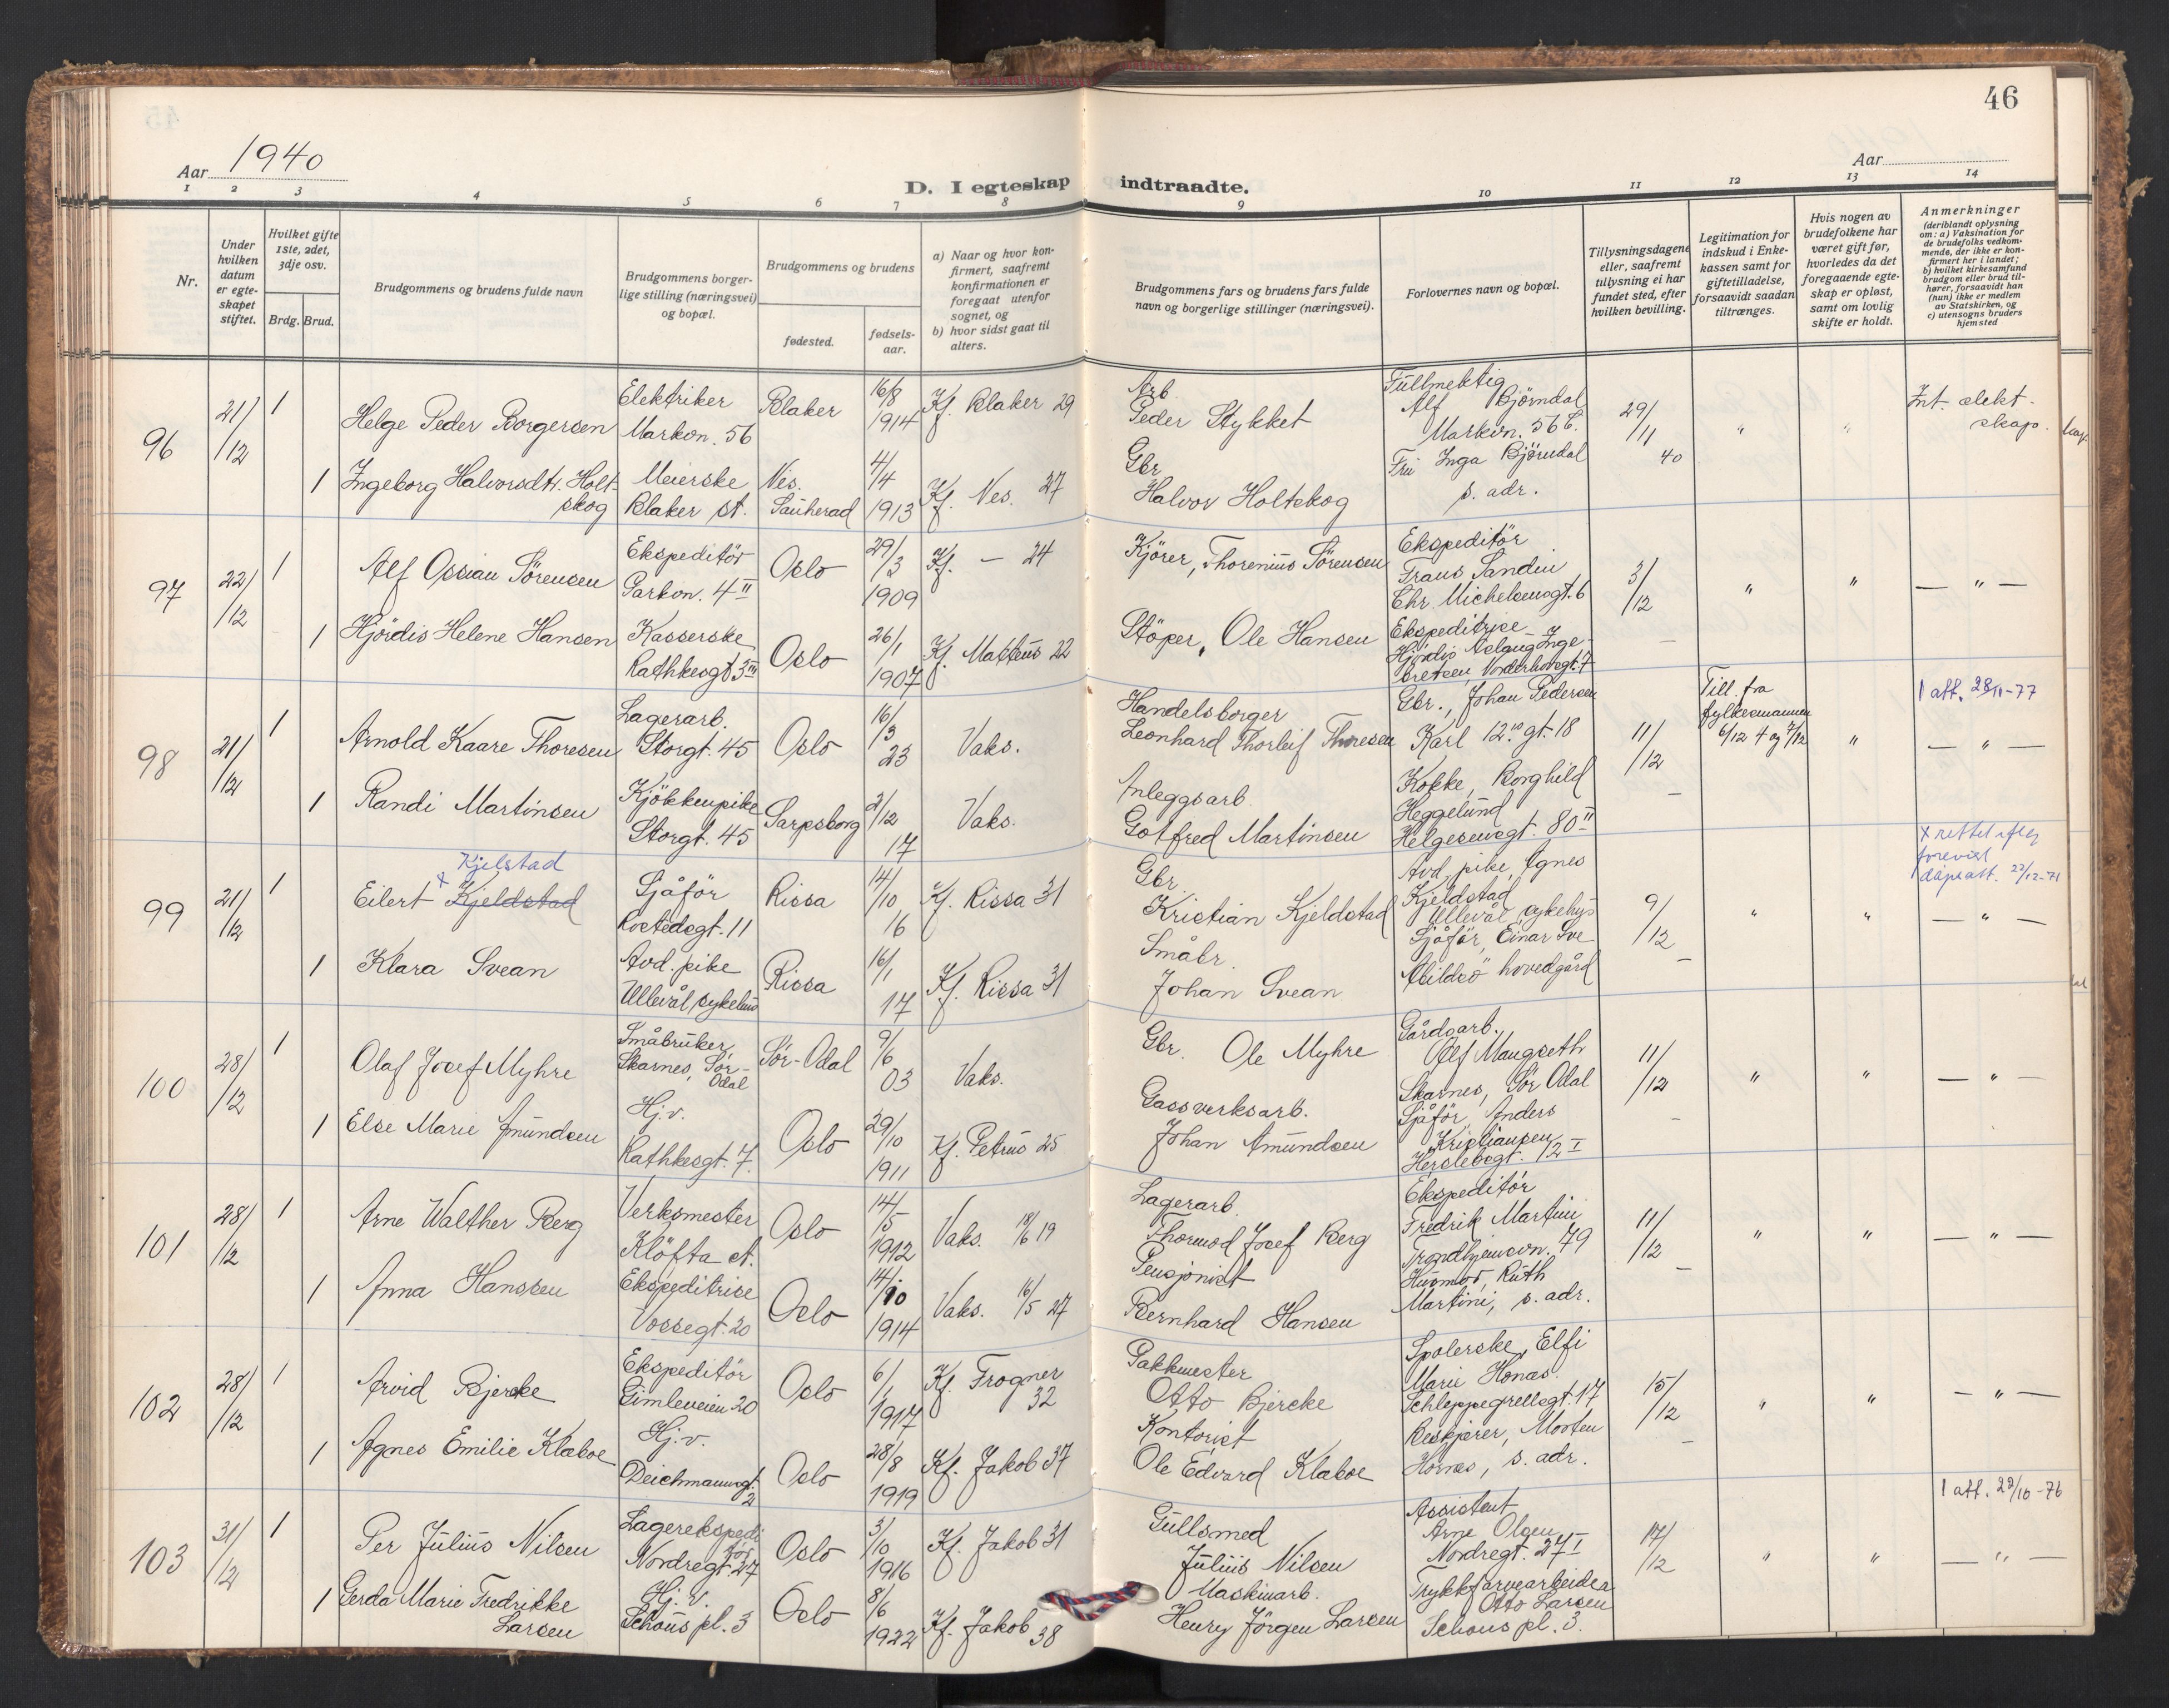 46
Aar 1940
Aar
D. I egteskap indtraadte.
1 2 3 4 5 6 7 8 9 10 11 12 13 14
Nr.
Under hvilken datum er egteskapet stiftet.
Hvilket gifte 1ste, 2det, 3dje osv.
Brdg. Brud.
Brudgommens og brudens fulde navn
Brudgommens borgerlige stilling (næringsvei) og bopæl.
Brudgommens og brudens
fødested.
fødselsaar.
a) Naar og hvor konfirmert, saafremt konfirmationen er foregaat utenfor sognet, og
b) hvor sidst gaat til alters.
Brudgommens fars og brudens fars fulde navn og borgerlige stillinger (næringsvei).
Forlovernes navn og bopæl.
Tillysningsdagene eller, saafremt tillysning ei har fundet sted, efter hvilken bevilling.
Legitimation for indskud i Enkekassen samt for giftetilladelse, forsaavidt saadan tiltrænges.
Hvis nogen av brudefolkene har været gift før, hvorledes da det foregaaende egteskap er opløst, samt om lovlig skifte er holdt.
Anmerkninger (deriblandt oplysning om: a) Vaksination for de brudefolks vedkommende, der ikke er konfirmert her i landet; b) hvilket kirkesamfund brudgom eller brud tilhører, forsaavidt han (hun) ikke er medlem av Statskirken, og c) utensogns bruders hjemsted
96 21/12 1 Helge Peder Borgersen Elektriker Markvn. 56 Blaker 16/8 1914 Kf. Blaker 29 Arb. Peder Stykket Fullmektig Alf Bjørndal Markvn. 56 b. 29/11 40 " " Int. slektskap.
1 Ingeborg Halvorsdtr. Holtskog Meierske Blaker st. Nes. Sauherad 4/4 1913 Kf. Nes. 27 Gbr. Halvor Holtskog Fru Inga Bjørndal s. adr.
97 22/12 1 Alf Ossian Sörensen Ekspeditör Parkvn. 4 II Oslo 29/3 1909 Kf. — 24 Kjörer, Thorenius Sörensen Ekspeditör Frans Sandin Chr. Michelsensgt. 6 3/12 " " — " —
1 Hjördis Helene Hansen Kasserske Rathkesgt 3 III Oslo 26/1 1907 Kf. Matteus 22 Stöper, Ole Hansen Ekspeditrise Hjördis Aslaug Ingebretsen, Vorderhovsgt. 7
98 21/12 1 Arnold Kaare Thoresen Lagerarb. Storgt. 45 Oslo 16/3 23 Vaks. Handelsborger Leonhard Thorleif Thoresen Gbr., Johan Pedersen Karl 12.tes gt. 18 11/12 – Till. fra fylkesmannen 6/12 + og 7/12 " — " — 1 att. 28/11-77
1 Randi Martinsen Kjökkenpike Storgt. 45 Sarpsborg 2/12 17 Vaks. Anleggsarb. Gotfred Martinsen Kokke, Borghild Heggelund Helgesensgt. 80 II
99 21/12 1 Eilert x Kjeldstad Kjelstad Sjåför Rostedsgt. 11 Rissa 14/10 16 Kf. Rissa 31 Gbr. Kristian Kjeldstad Avd. pike, Agnes Kjeldstad Ullevål sykehus 9/12 – " " — " — x rettet iflg forevist dåpsatt. 22/12-71
1 Klara Svean Avd. pike Ullevål sykehus Rissa 16/1 17 Kf. Rissa 31 Småbr. Johan Svean Sjåför, Einar Sve Abildsö hovedgård
100 28/12 1 Olaf Josef Myhre Småbruker Skarnes, Sör-Odal Sör-Odal 9/6 03 Vaks. Gbr. Ole Myhre Gårdsarb. Olf Maugseth Skarnes, Sör Odal 11/12 – " " — " —
1 Else Marie Amundsen Hj.v. Rathkesgt. 7. Oslo 29/10 1911 Kf. Petrus 25 Gassverksarb. Johan Amundsen Sjåför, Anders Kristiansen Herslebsgt. 12 I
101 28/12 1 Arne Walther Berg Verksmester Klöfta st. Oslo 14/5 1912 Vaks. 18/6 19 Lagerarb. Thormod Josef Berg Ekspeditör Fredrik Martini Trondhjemsvn. 79 11/12 – " " — " —
1 Anna Hanssen Ekspeditrise Vossegt. 20 Oslo 14/10 1914 Vaks. 16/5 27 Pensjonist Bernhard Hansen Husmor, Ruth Martini, s. adr.
102 28/12 1 Arvid Bjercke Ekspeditör Gimleveien 20 Oslo 6/1 1917 Kf. Frogner 32 Pakkmester Otto Bjercke Spolerske, Elfi Marie Hornæs. Schleppegrellsgt. 17 15/12 – " " — " —
1 Agnes Emilie Klaboe Hj.v. Deichmannsgt. 2 Oslo 28/8 1919 Kf. Jakob 37 Kontorist Ole Edvard Klaboe Beskjærer, Morten Hornæs, s. adr.
103 31/12 1 Per Julius Nilsen Lagerekspeditör Nordregt. 27 Oslo 3/10 1916 Kf. Jakob 31 Gullsmed Julius Nilsen Assistent Arne Olsen Nordregt. 27 I 17/12 " " — " — 1 att. 22/10-76
1 Gerda Marie Fredrikke Larsen Hj. v. Schous pl. 3 Oslo 8/6 1922 Kf. Jakob 38 Maskinarb. Henry Jörgen Larsen Trykkfarvearbeider Otto Larsen Schous pl. 3.